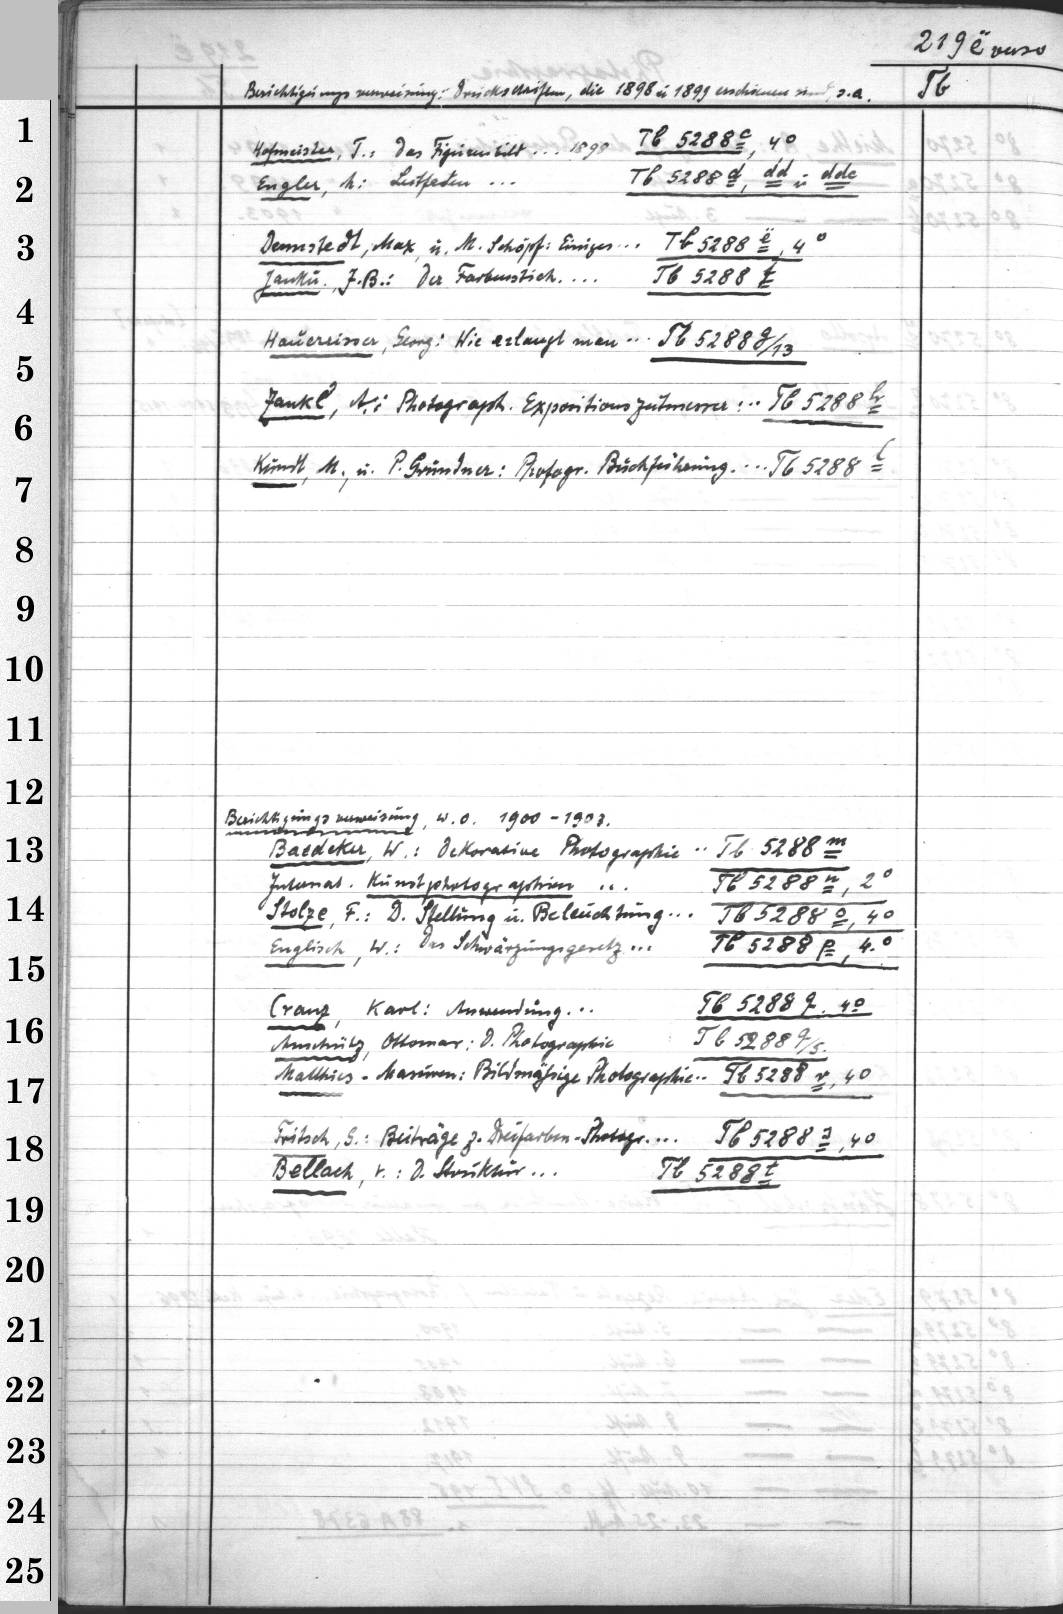 219 ë verso
Berichtigungsverweisung: Druckschriften, die 1898 u 1899 erschienen sind, s.a. Tb
1
Hofmeister, T.: Das Figurenbild ... 1898 Tb 5288 c, 4°
Engler, M: Leitfaden ... Tb 5288 d, dd u ddc
2
Dennstedt, Max, u. M. Schöpf: Einiges... Tb 5288 ë, 4°
3
Janku, J.B.: Der Farbenstich.... Tb 5288 f
4
Hauerrisser, Georg: Wie erlangt man ... Tb 5288 g/13
5
Jankl, A.: Photograph. Expositionszeitmesser ... Tb 5288 h
6
Kundt, M., u. P. Grundner: Photogr. Buchführung. ... Tb 5288 l
7
8
9
10
11
12
Berichtigungsverweisung, w.o. 1900-1903.
13
Baedeker, W.: Dekorative Photographie .. Tb 5288 m
Internat. Kunstphotographien ... Tb 5288 n, 2°
14
Stolze, F.: D. Stellung u. Beleuchtung... Tb 5288 o, 4°
Englisch, W.: Das Schwärzungsgesetz... Tb 5288 p, 4.°
15
Cranz, Karl: Anwendung... Tb 5288 q. 4°
16
Anschütz, Ottomar: D. Photographie Tb 5288 q/5.
Matthies-Masuren: Bildmäßige Photographie.. Tb 5288 r, 4°
17
Fritsch, G.: Beiträge z. Dreifarben-Photogr.... Tb 5288 s, 4°
18
Bellach, V.: D. Struktur... Tb 5288 t
19
20
21
22
23
24
25